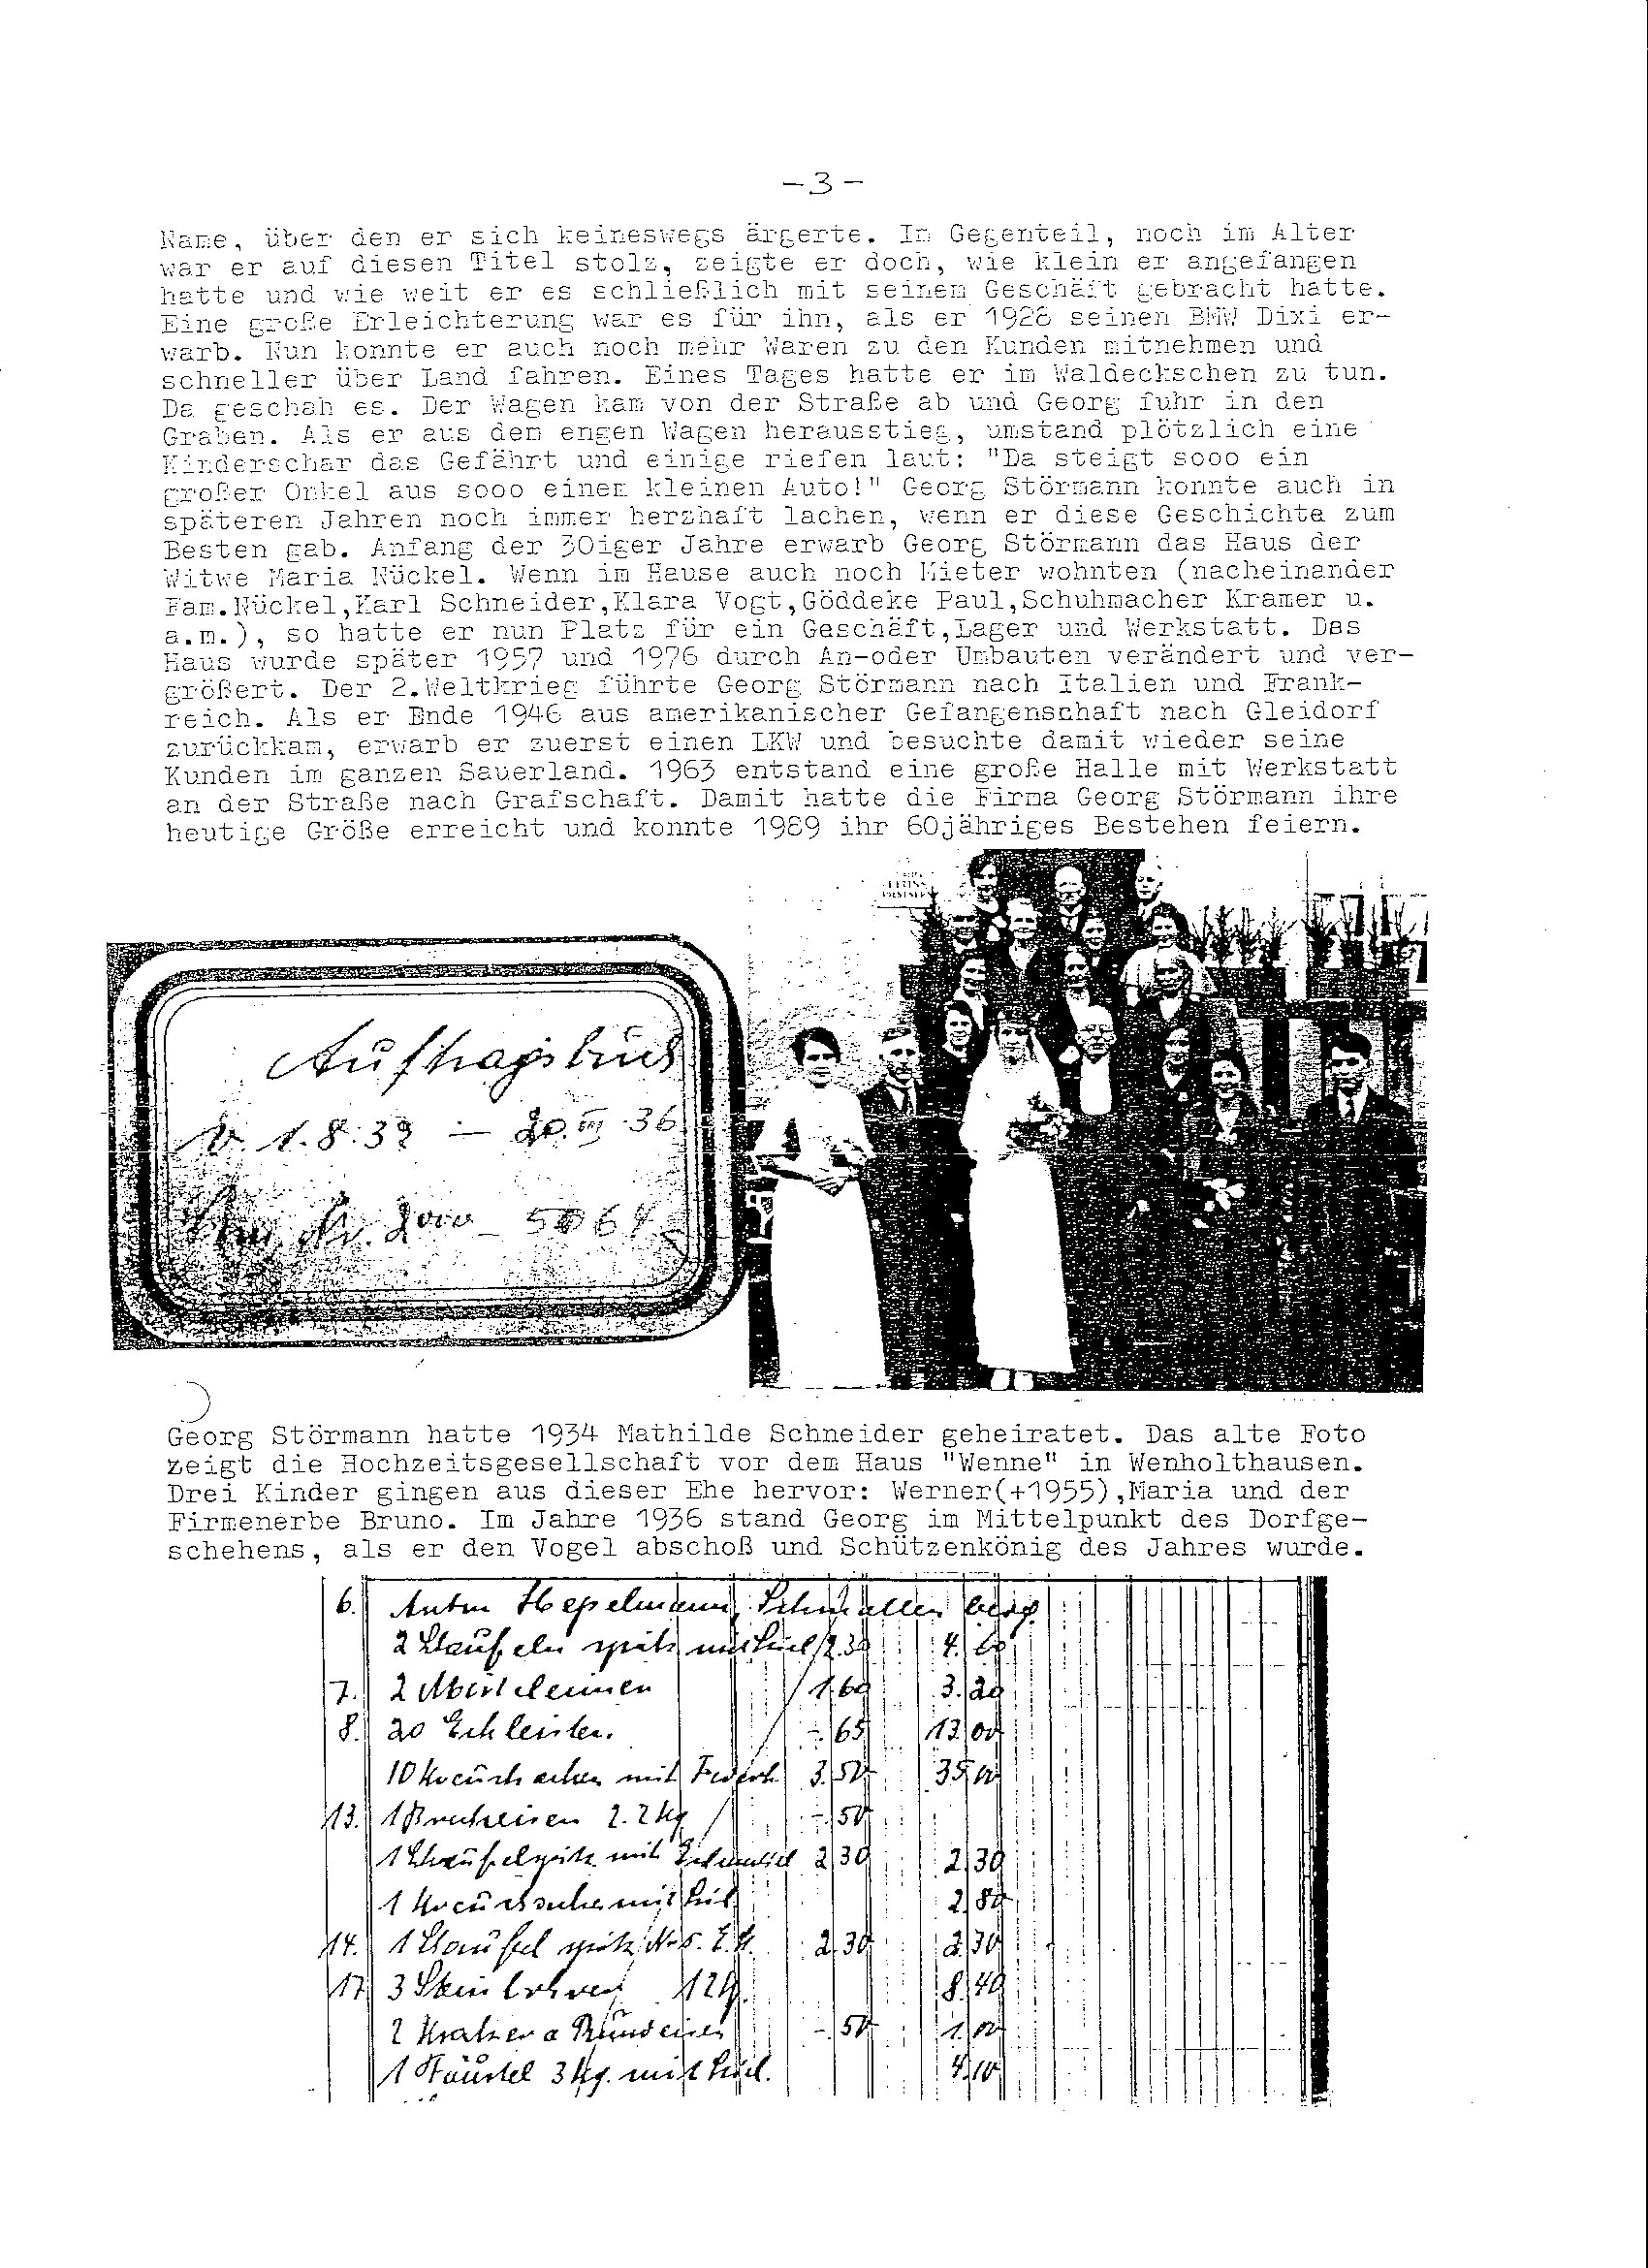 -3-
Name, über den er sich keineswegs ärgerte. Im Gegenteil, noch im Alter
war er auf diesen Titel stolz, zeigte er doch, wie klein er angefangen
hatte und wie weit er es schließlich mit seinem Geschäft gebracht hatte.
Eine große Erleichterung war es für ihn, als er 1928 seinen BMW Dixi er-
warb. Nun konnte er auch noch mehr Waren zu den Kunden mitnehmen und
schneller über Land fahren. Eines Tages hatte er im Waldeckschen zu tun.
Da geschah es. Der Wagen kam von der Straße ab und Georg fuhr in den
Graben. Als er aus dem engen Wagen herausstieg, umstand plötzlich eine
Kinderschar das Gefährt und einige riefen laut: "Da steigt sooo ein
großer Onkel aus sooo einem kleinen Auto!" Georg Störmann konnte auch in
späteren Jahren noch immer herzhaft lachen, wenn er diese Geschichte zum
Besten gab. Anfang der 30iger Jahre erwarb Georg Störmann das Haus der
Witwe Maria Nückel. Wenn im Hause auch noch Mieter wohnten (nacheinander
Fam.Nückel,Karl Schneider,Klara Vogt,Göddeke Paul,Schuhmacher Kramer u.
a.m.), so hatte er nun Platz für ein Geschäft,Lager und Werkstatt. Das
Haus wurde später 1957 und 1976 durch An-oder Umbauten verändert und ver-
größert. Der 2.Weltkrieg führte Georg Störmann nach Italien und Frank-
reich. Als er Ende 1946 aus amerikanischer Gefangenschaft nach Gleidorf
zurückkam, erwarb er zuerst einen LKW und besuchte damit wieder seine
Kunden im ganzen Sauerland. 1963 entstand eine große Halle mit Werkstatt
an der Straße nach Grafschaft. Damit hatte die Firma Georg Störmann ihre
heutige Größe erreicht und konnte 1989 ihr 60jähriges Bestehen feiern.
Auftragsbuch
v. 1.8.32 — 20.III.36
Nr. 2000 - 5064
Georg Störmann hatte 1934 Mathilde Schneider geheiratet. Das alte Foto
zeigt die Hochzeitsgesellschaft vor dem Haus "Wenne" in Wenholthausen.
Drei Kinder gingen aus dieser Ehe hervor: Werner(+1955),Maria und der
Firmenerbe Bruno. Im Jahre 1936 stand Georg im Mittelpunkt des Dorfge-
schehens, als er den Vogel abschoß und Schützenkönig des Jahres wurde.
6. Anton Hepelmann, Schmallenberg
2 Schaufeln spitz mit Stiel 2.30 4.60
7. 2 1,60 3.20
8. 20 -.65 13,00
10 mit 3.50 35,00
13. 1 Brucheisen 2.2 kg -.50
1 Schaufel spitz mit 2,30 2,30
1 mit Stiel 2,80
14. 1 Schaufel spitz 2,30 2,30
17. 3 Steinbohrer 8,40
2 Kratzer a Rundeisen -.50 1.00
1 Fäustel 3 kg. mit Stiel. 4,10